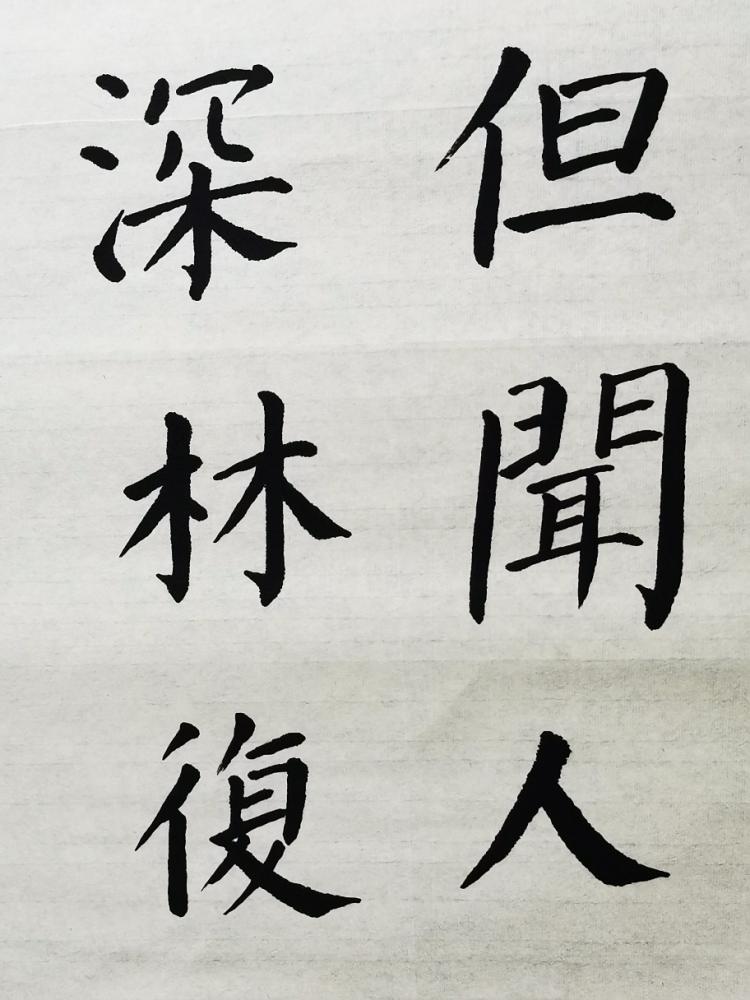 但聞人
深林復